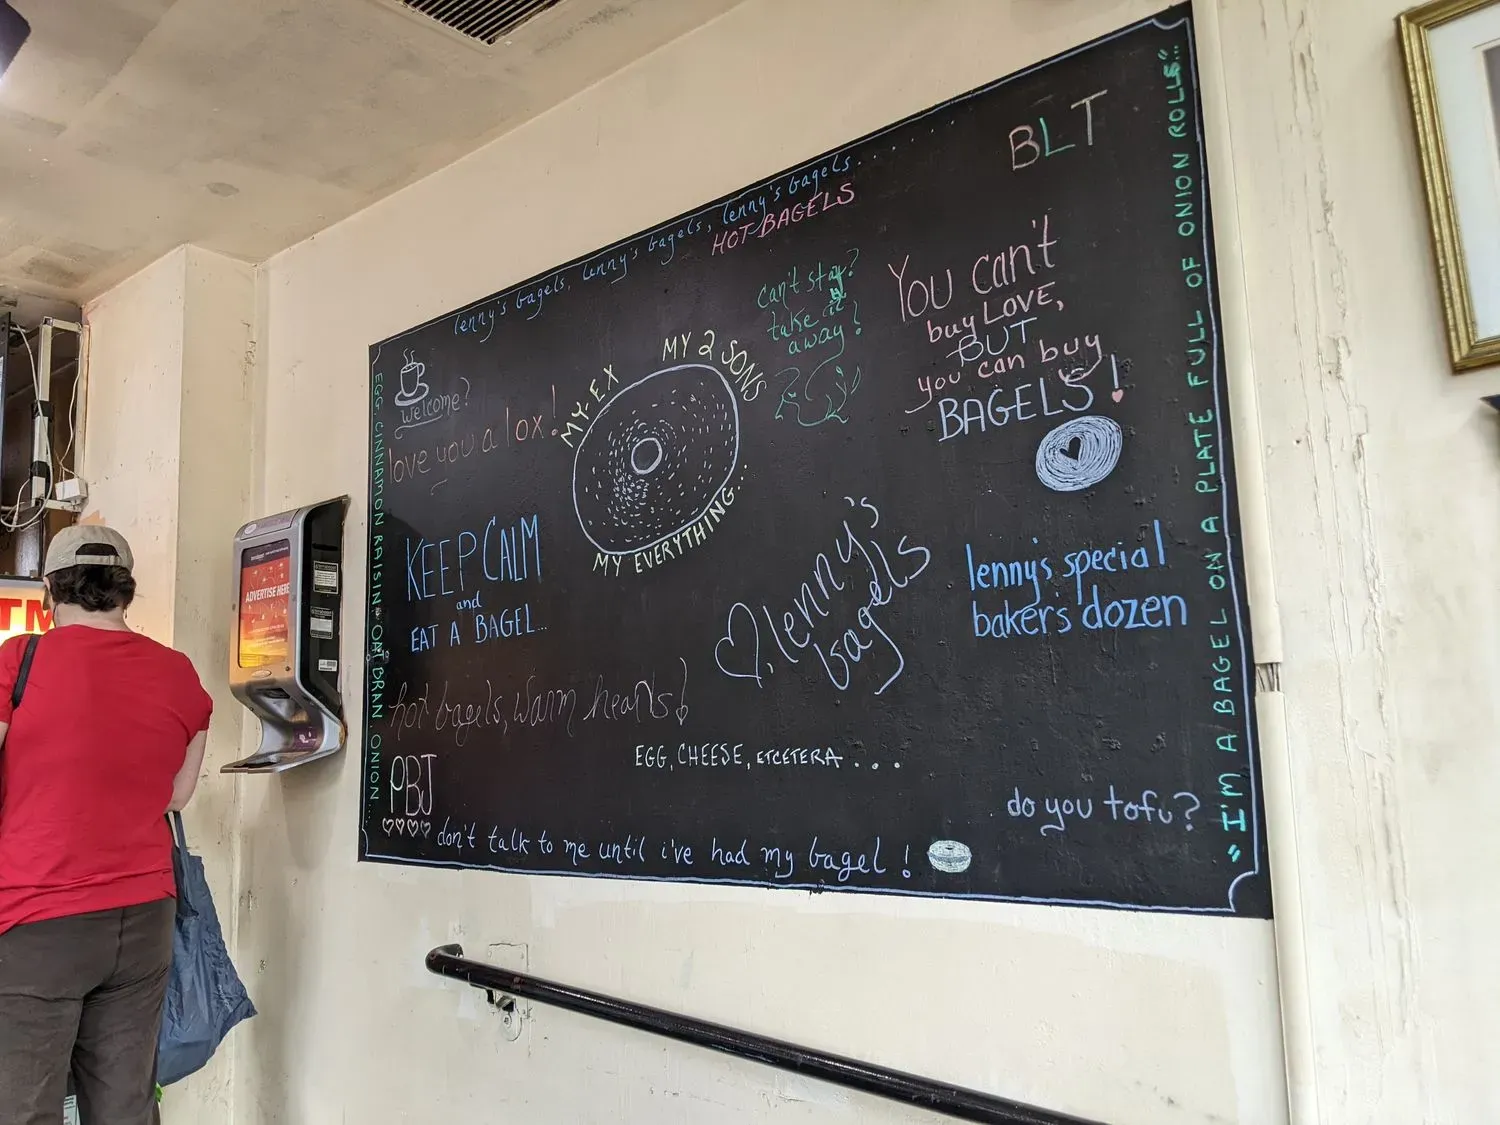 lenny's bagels, lenny's bagels, lenny's bagels.....
HOT BAGELS
BLT
EGG, CINNAMON RAISIN, OAT BRAN, ONION...
welcome?
love you a lox!
MY-EX
MY 2 SONS
MY EVERYTHING...
can't stay?
take it
away?
You can't
buy LOVE,
BUT
you can buy
BAGELS!
KEEP CALM
and
EAT A BAGEL...
lenny's
bagels
lenny's special
baker's dozen
hot bagels, warm hearts!
EGG, CHEESE, ETCETERA....
PBJ
do you tofu?
don't talk to me until i've had my bagel!
"I'M A BAGEL ON A PLATE FULL OF ONION ROLLS"...
ADVERTISE HERE
TM